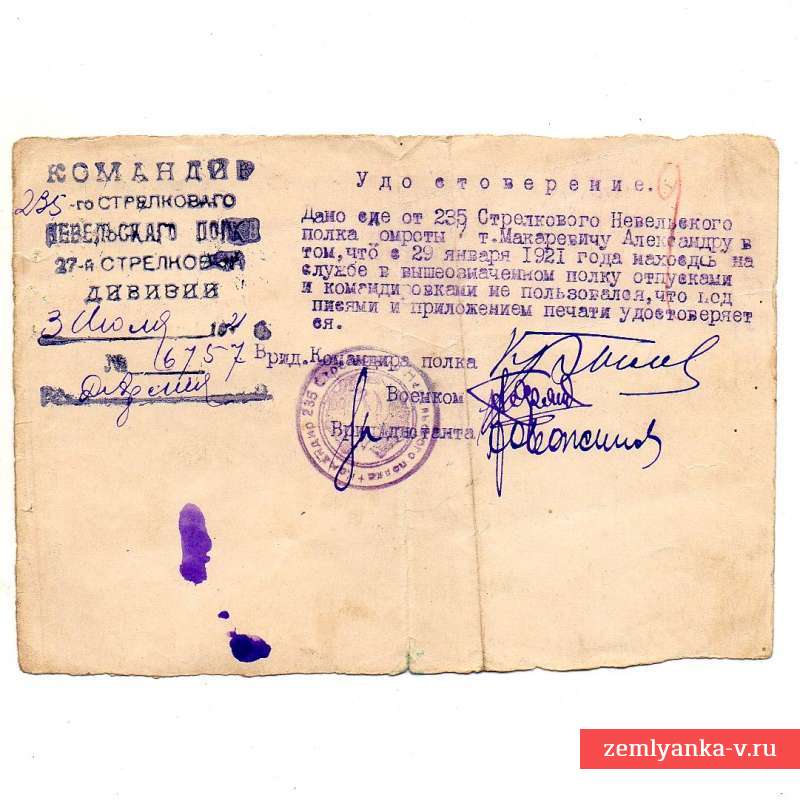 КОМАНДИР
235-го СТРЕЛКОВАГО
НЕВЕЛЬСКАГО ПОЛКА
27-й СТРЕЛКОВОЙ
ДИВИЗИИ
3 Июля 1921
№ 6757
Удостоверение.
Дано сие от 235 Стрелкового Невельского
полка омроты 7 т.Макаревичу Александру в
том,что с 29 января 1921 года находясь на
службе в вышеозначенном полку отпусками
и командировками не пользовался,что под
писями и приложением печати удостоверяет
ся.
Врид.Командира полка
Военком
Врид Адютанта
zemlyanka-v.ru